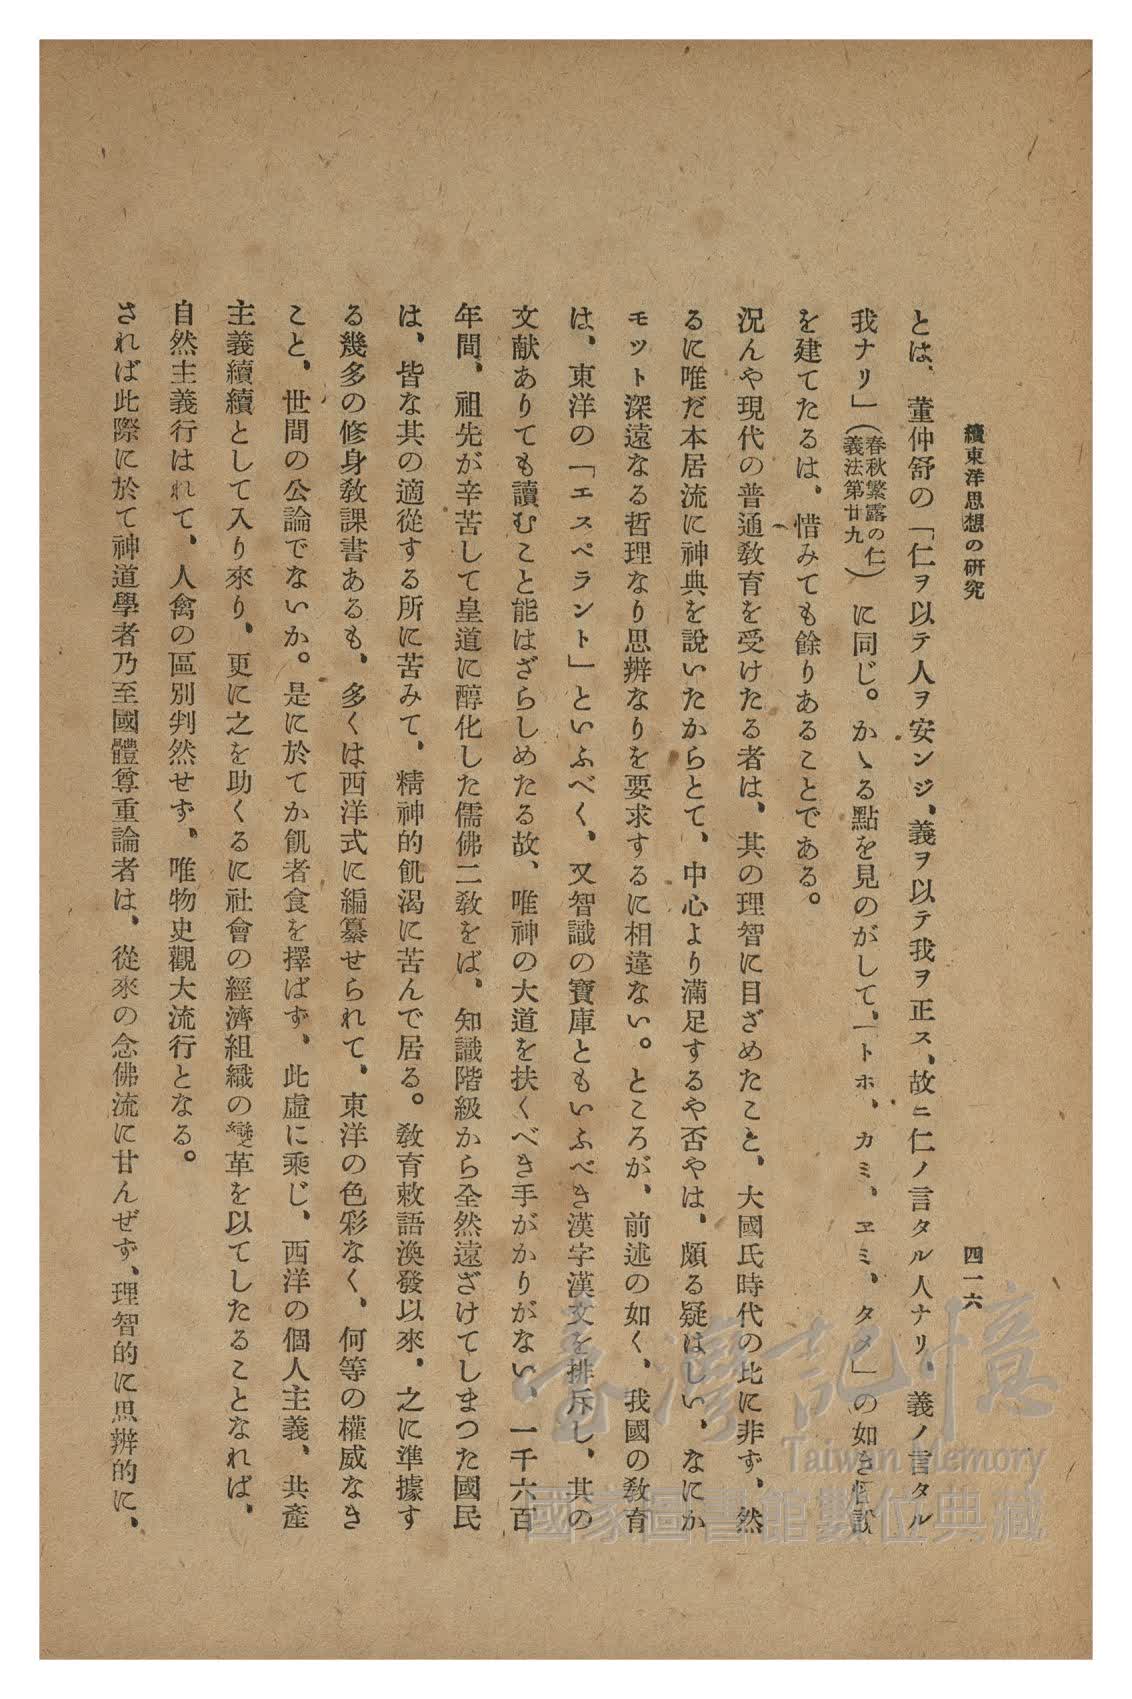 續東洋思想の研究
四一六
とは、董仲舒の「仁ヲ以テ人ヲ安ンジ、義ヲ以テ我ヲ正ス、故ニ仁ノ言タル人ナリ、義ノ言タル
我ナリ」(春秋繁露の仁義法第廿九)に同じ。かゝる點を見のがして、「トホ、カミ、ヱミ、タメ」の如き
を建てたるは、惜みても餘りあることである。
況んや現代の普通敎育を受けたる者は、其の理智に目ざめたこと、大國氏時代の比に非ず、然
るに唯だ本居流に神典を說いたからとて、中心より滿足するや否やは、頗る疑はしい、なにか
モット深遠なる哲理なり思辨なりを要求するに相違ない。ところが、前述の如く、我國の敎育
は、東洋の「エスペラント」といふべく、又智識の寶庫ともいふべき漢字漢文を排斥し、其の
文献ありても讀むこと能はざらしめたる故、唯神の大道を扶くべき手がかりがない、一千六百
年間、祖先が辛苦して皇道に醇化した儒佛二敎をば、知識階級から全然遠ざけてしまつた國民
は、皆な其の適從する所に苦みて、精神的飢渴に苦んで居る。敎育敕語渙發以來、之に準據す
る幾多の修身敎課書あるも、多くは西洋式に編纂せられて、東洋の色彩なく、何等の權威なき
こと、世間の公論でないか。是に於てか飢者食を擇ばず、此虛に乘じ、西洋の個人主義、共產
主義續續として入り來り、更に之を助くるに社會の經濟組織の變革を以てしたることなれば、
自然主義行はれて、人禽の區別判然せず、唯物史觀大流行となる。
されば此際に於て神道學者乃至國體尊重論者は、從來の念佛流に甘んぜず、理智的に思辨的に、
臺灣記憶
Taiwan Memory
國家圖書館數位典藏